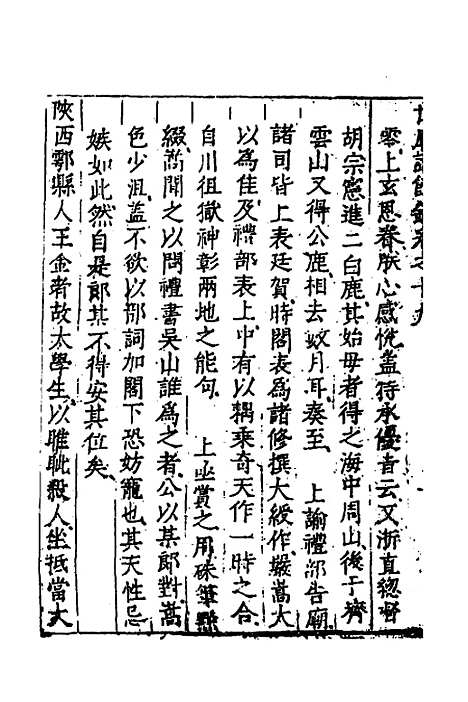 零上玄恩眷朕心感悅蓋待承優者云又浙直緫督
胡宗憲進二白鹿其始毋者得之海中周山後于齊
雲山又得公鹿相去数月耳奏至　上諭禮部告廟
諸司皆上表廷賀時閣表爲諸修撰大綬作嚴嵩大
以爲佳及禮部表上中有以耦乘奇天作一時之合
自川徂嶽神彰兩地之能句　上亟賞之用硃筆㸃
綴嵩聞之以問禮書吳山誰爲之者公以某郎對嵩
色少沮盖不欲以部詞加閣下恐妨寵也其天性忌
嫉如此然自是郎其不得安其位矣
陝西鄠縣人王金者故太學生以睢眦殺人坐抵當大